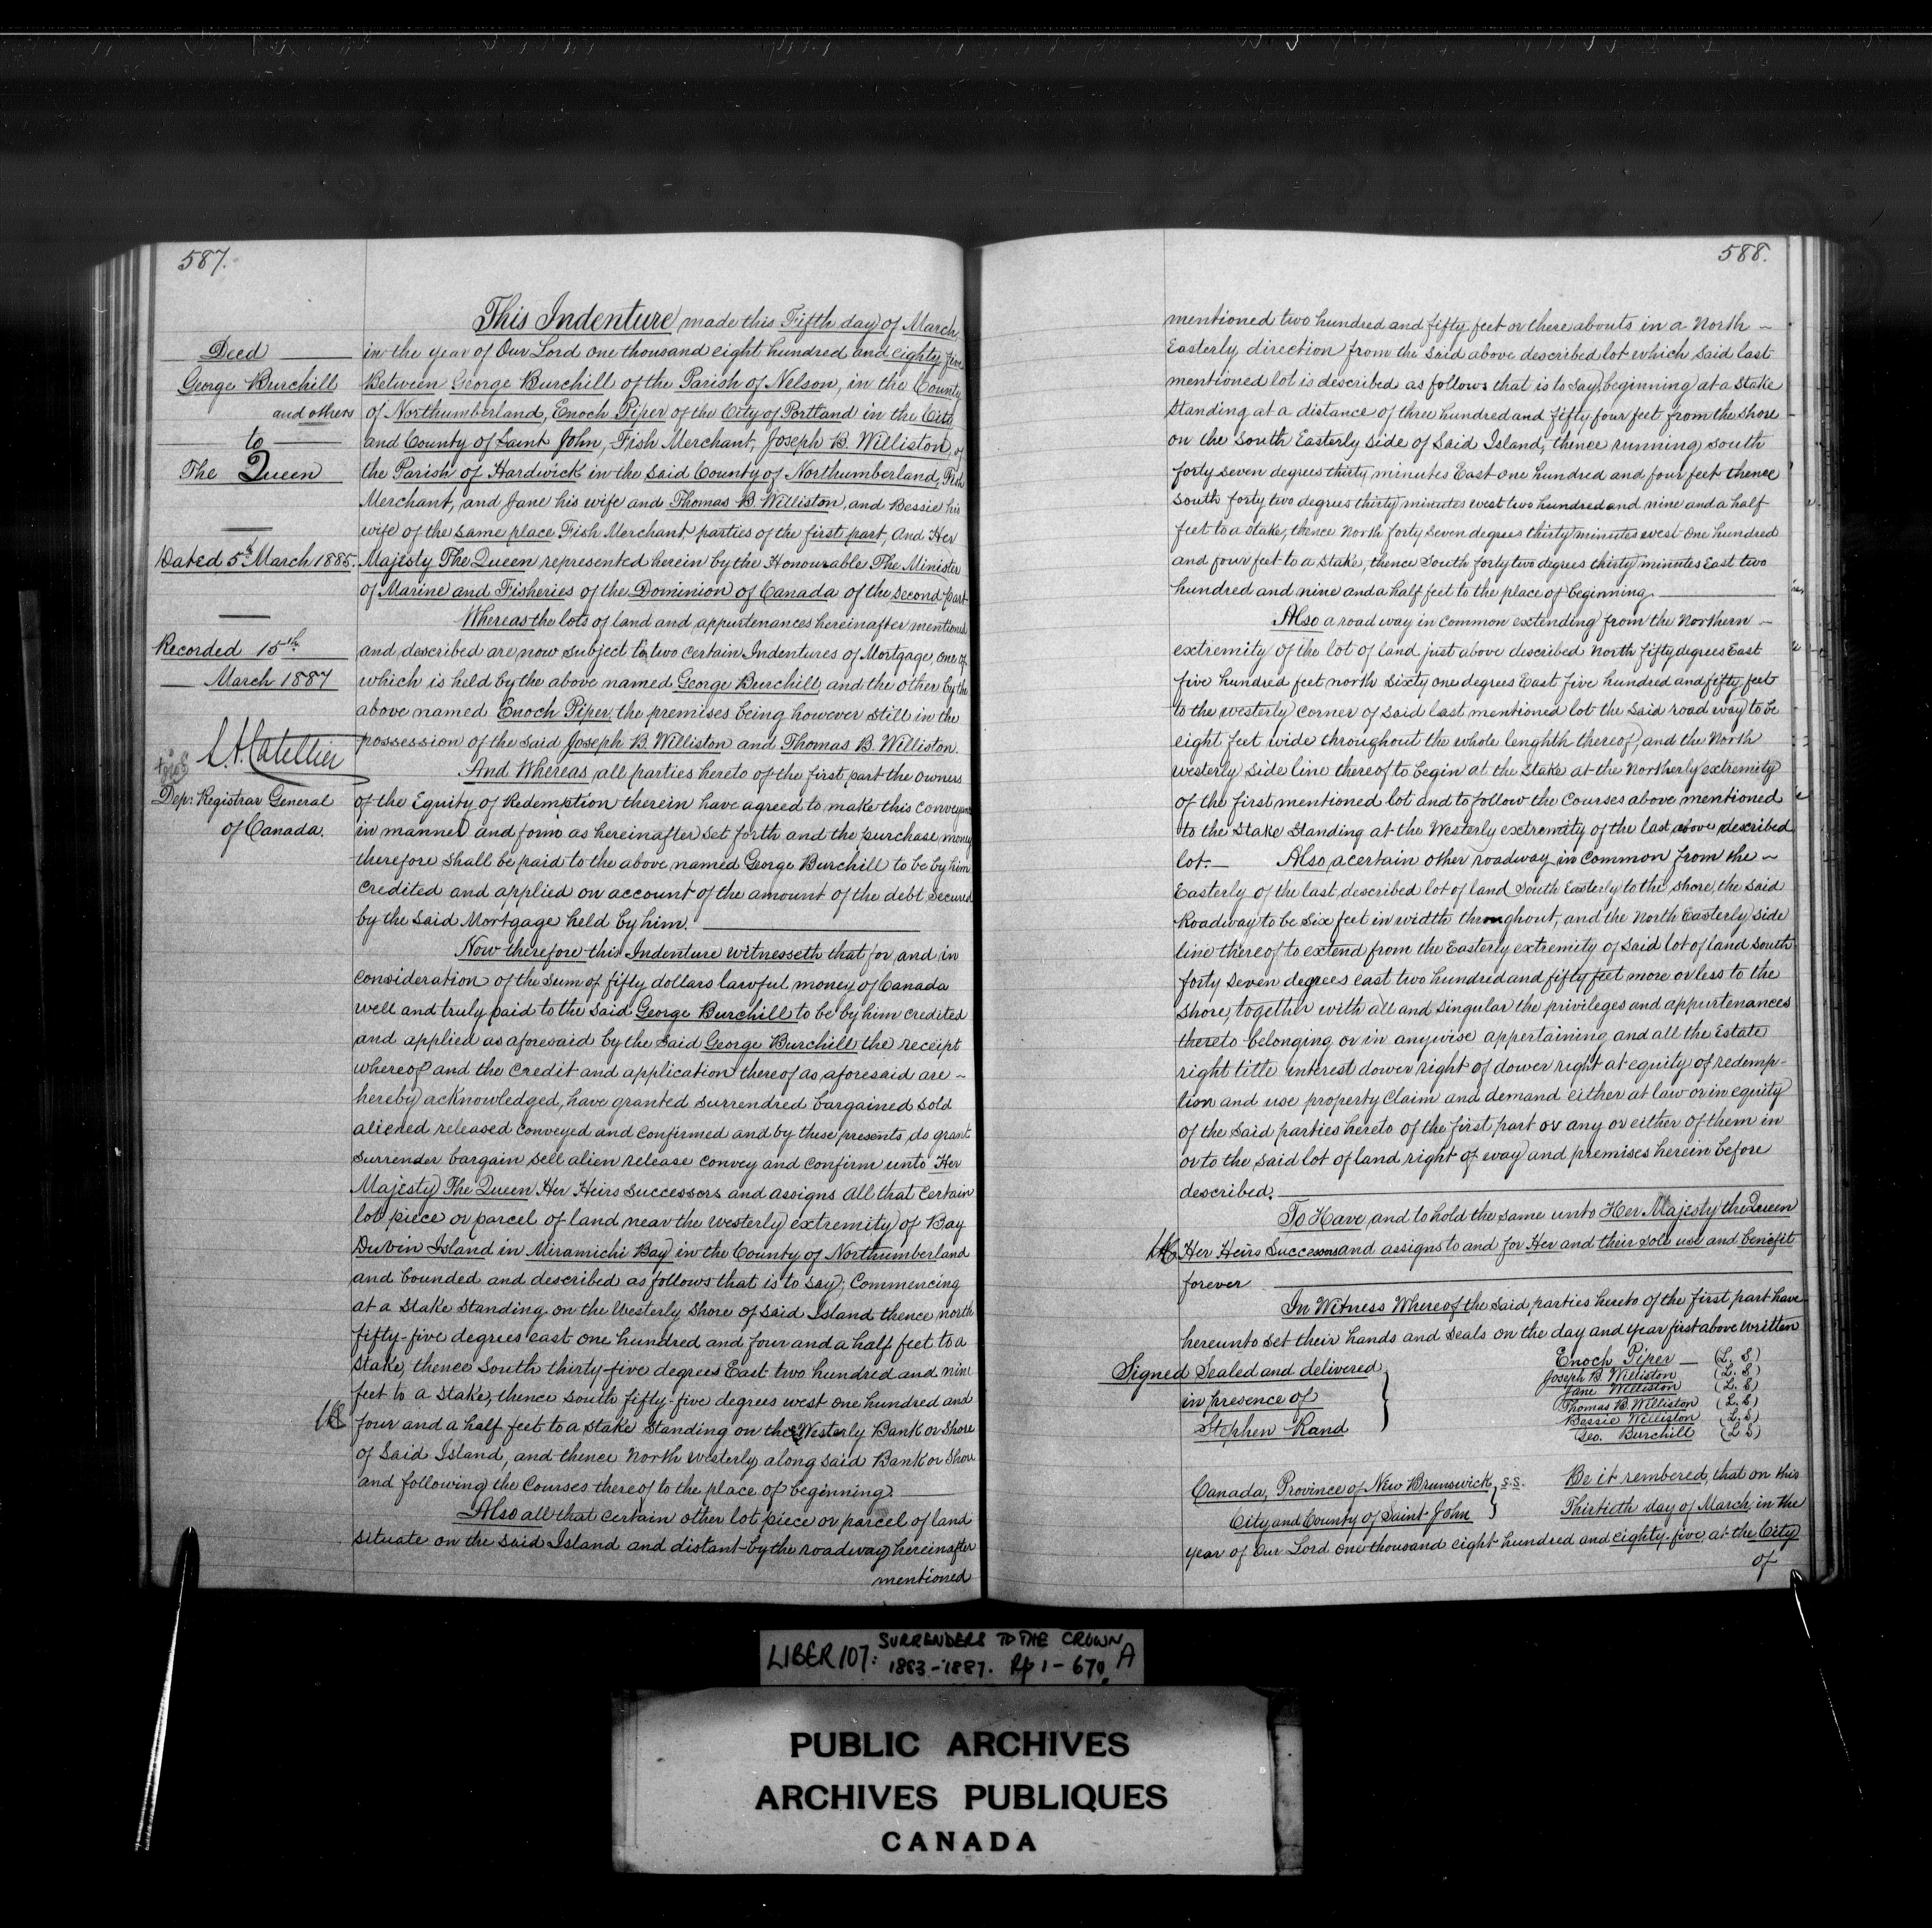 587.
Deed
George Burchill
and others
to
The Queen
Dated 5th March 1885.
Recorded 15th
March 1887
Depy. Registrar General
of Canada.
This Indenture made this Fifth day of March
in the year of Our Lord one thousand eight hundred and eighty five
Between George Burchill of the Parish of Nelson, in the County
of Northumberland, Enoch Piper of the City of Portland in the City
and County of Saint John, Fish Merchant, Joseph B. Williston, of
the Parish of Hardwick in the said County of Northumberland, Fish
Merchant, and Jane his wife and Thomas B. Williston, and Bessie his
wife of the same place Fish Merchant parties of the first part, And Her
Majesty The Queen represented herein by the Honourable The Minister
of Marine and Fisheries of the Dominion of Canada of the second part
Whereas the lots of land and appurtenances hereinafter mentioned
and described are now subject to two certain Indentures of Mortgage, one of
which is held by the above named George Burchill and the other by the
above named Enoch Piper, the premises being however still in the
possession of the said Joseph B. Williston and Thomas B. Williston.
And Whereas, all parties hereto of the first part the owners
of the Equity of Redemption therein have agreed to make this conveyance
in manner and form as hereinafter set forth and the purchase money
therefore shall be paid to the above named George Burchill to be by him
credited and applied on account of the amount of the debt secured
by the said Mortgage held by him.
Now therefore this Indenture witnesseth that for and in
consideration of the sum of fifty dollars lawful money of Canada
well and truly paid to the said George Burchill to be by him credited
and applied as aforesaid by the said George Burchill the receipt
whereof and the credit and application thereof as aforesaid are ~
hereby acknowledged, have granted surrendred bargained sold
aliened released conveyed and confirmed and by these presents do grant
surrender bargain sell alien release convey and confirm unto Her
Majesty The Queen Her Heirs successors and assigns all that certain
lot piece or parcel of land near the westerly extremity of Bay
Duvin Island in Miramichi Bay in the County of Northumberland
and bounded and described as follows that is to say; Commencing
at a stake standing on the Westerly shore of said Island thence north
fifty-five degrees east one hundred and four and a half feet to a
stake, thence South thirty-five degrees East two hundred and nine
feet to a stake, thence south fifty-five degrees west one hundred and
four and a half feet to a stake standing on the Westerly Bank or shore
of said Island, and thence North Westerly along said Bank or Shore
and following the Courses thereof to the place of beginning.
Also all that certain other lot piece or parcel of land
situate on the said Island and distant by the roadway hereinafter
mentioned
588.
mentioned two hundred and fifty feet or there abouts in a North ~
Easterly direction from the said above described lot which said last
mentioned lot is described as follows that is to say, beginning at a stake
standing at a distance of three hundred and fifty four feet from the shore
on the South Easterly side of said Island, thence running south
forty seven degrees thirty minutes East one hundred and four feet thence
south forty two degrees thirty minutes west two hundred and nine and a half
feet to a stake, thence North forty seven degrees thirty minutes west one hundred
and four feet to a stake, thence South forty two degrees thirty minutes East two
hundred and nine and a half feet to the place of beginning.
Also a road way in common extending from the Northern ~
extremity of the lot of land just above described North fifty degrees East
five hundred feet north sixty one degrees East five hundred and fifty feet
to the westerly corner of said last mentioned lot the said road way to be
eight feet wide throughout the whole lenghth thereof, and the North
westerly side line thereof to begin at the stake at the Northerly extremity
of the first mentioned lot and to follow the courses above mentioned
to the stake standing at the Westerly extremity of the last above described
lot. Also, a certain other roadway in common from the ~
Easterly of the last described lot of land South Easterly to the shore, the said
Roadway to be six feet in width throughout, and the North Easterly side
line thereof to extend from the Easterly extremity of said lot of land south
forty seven degrees east two hundred and fifty feet more or less to the
shore, together with all and singular the privileges and appurtenances
thereto belonging or in anywise appertaining and all the Estate
right title interest dower right of dower right at equity of redemp-
tion and use property claim and demand either at law or in equity
of the said parties hereto of the first part or any or either of them in
or to the said lot of land right of way and premises herein before
described.
To Have and to hold the same unto Her Majesty the Queen
Her Heirs Successors and assigns to and for Her and their sole use and benefit
forever
In Witness Whereof the said parties hereto of the first part have
hereunto set their hands and seals on the day and year first above written
Signed Sealed and delivered
in presence of
Stephen Rand
Enoch Piper (L. S)
Joseph B. Williston (L. S)
Jane Williston (L. S)
Thomas B. Williston (L. S)
Bessie Williston (L. S)
Geo. Burchill (L S)
Canada, Province of New Brunswick s.s.
City and County of Saint John
Be it rembered, that on this
Thirtieth day of March, in the
year of Our Lord one thousand eight hundred and eighty-five, at the City
of
LIBER 107: SURRENDERS TO THE CROWN
1883-1887. Pp 1-670. A
PUBLIC ARCHIVES
ARCHIVES PUBLIQUES
CANADA